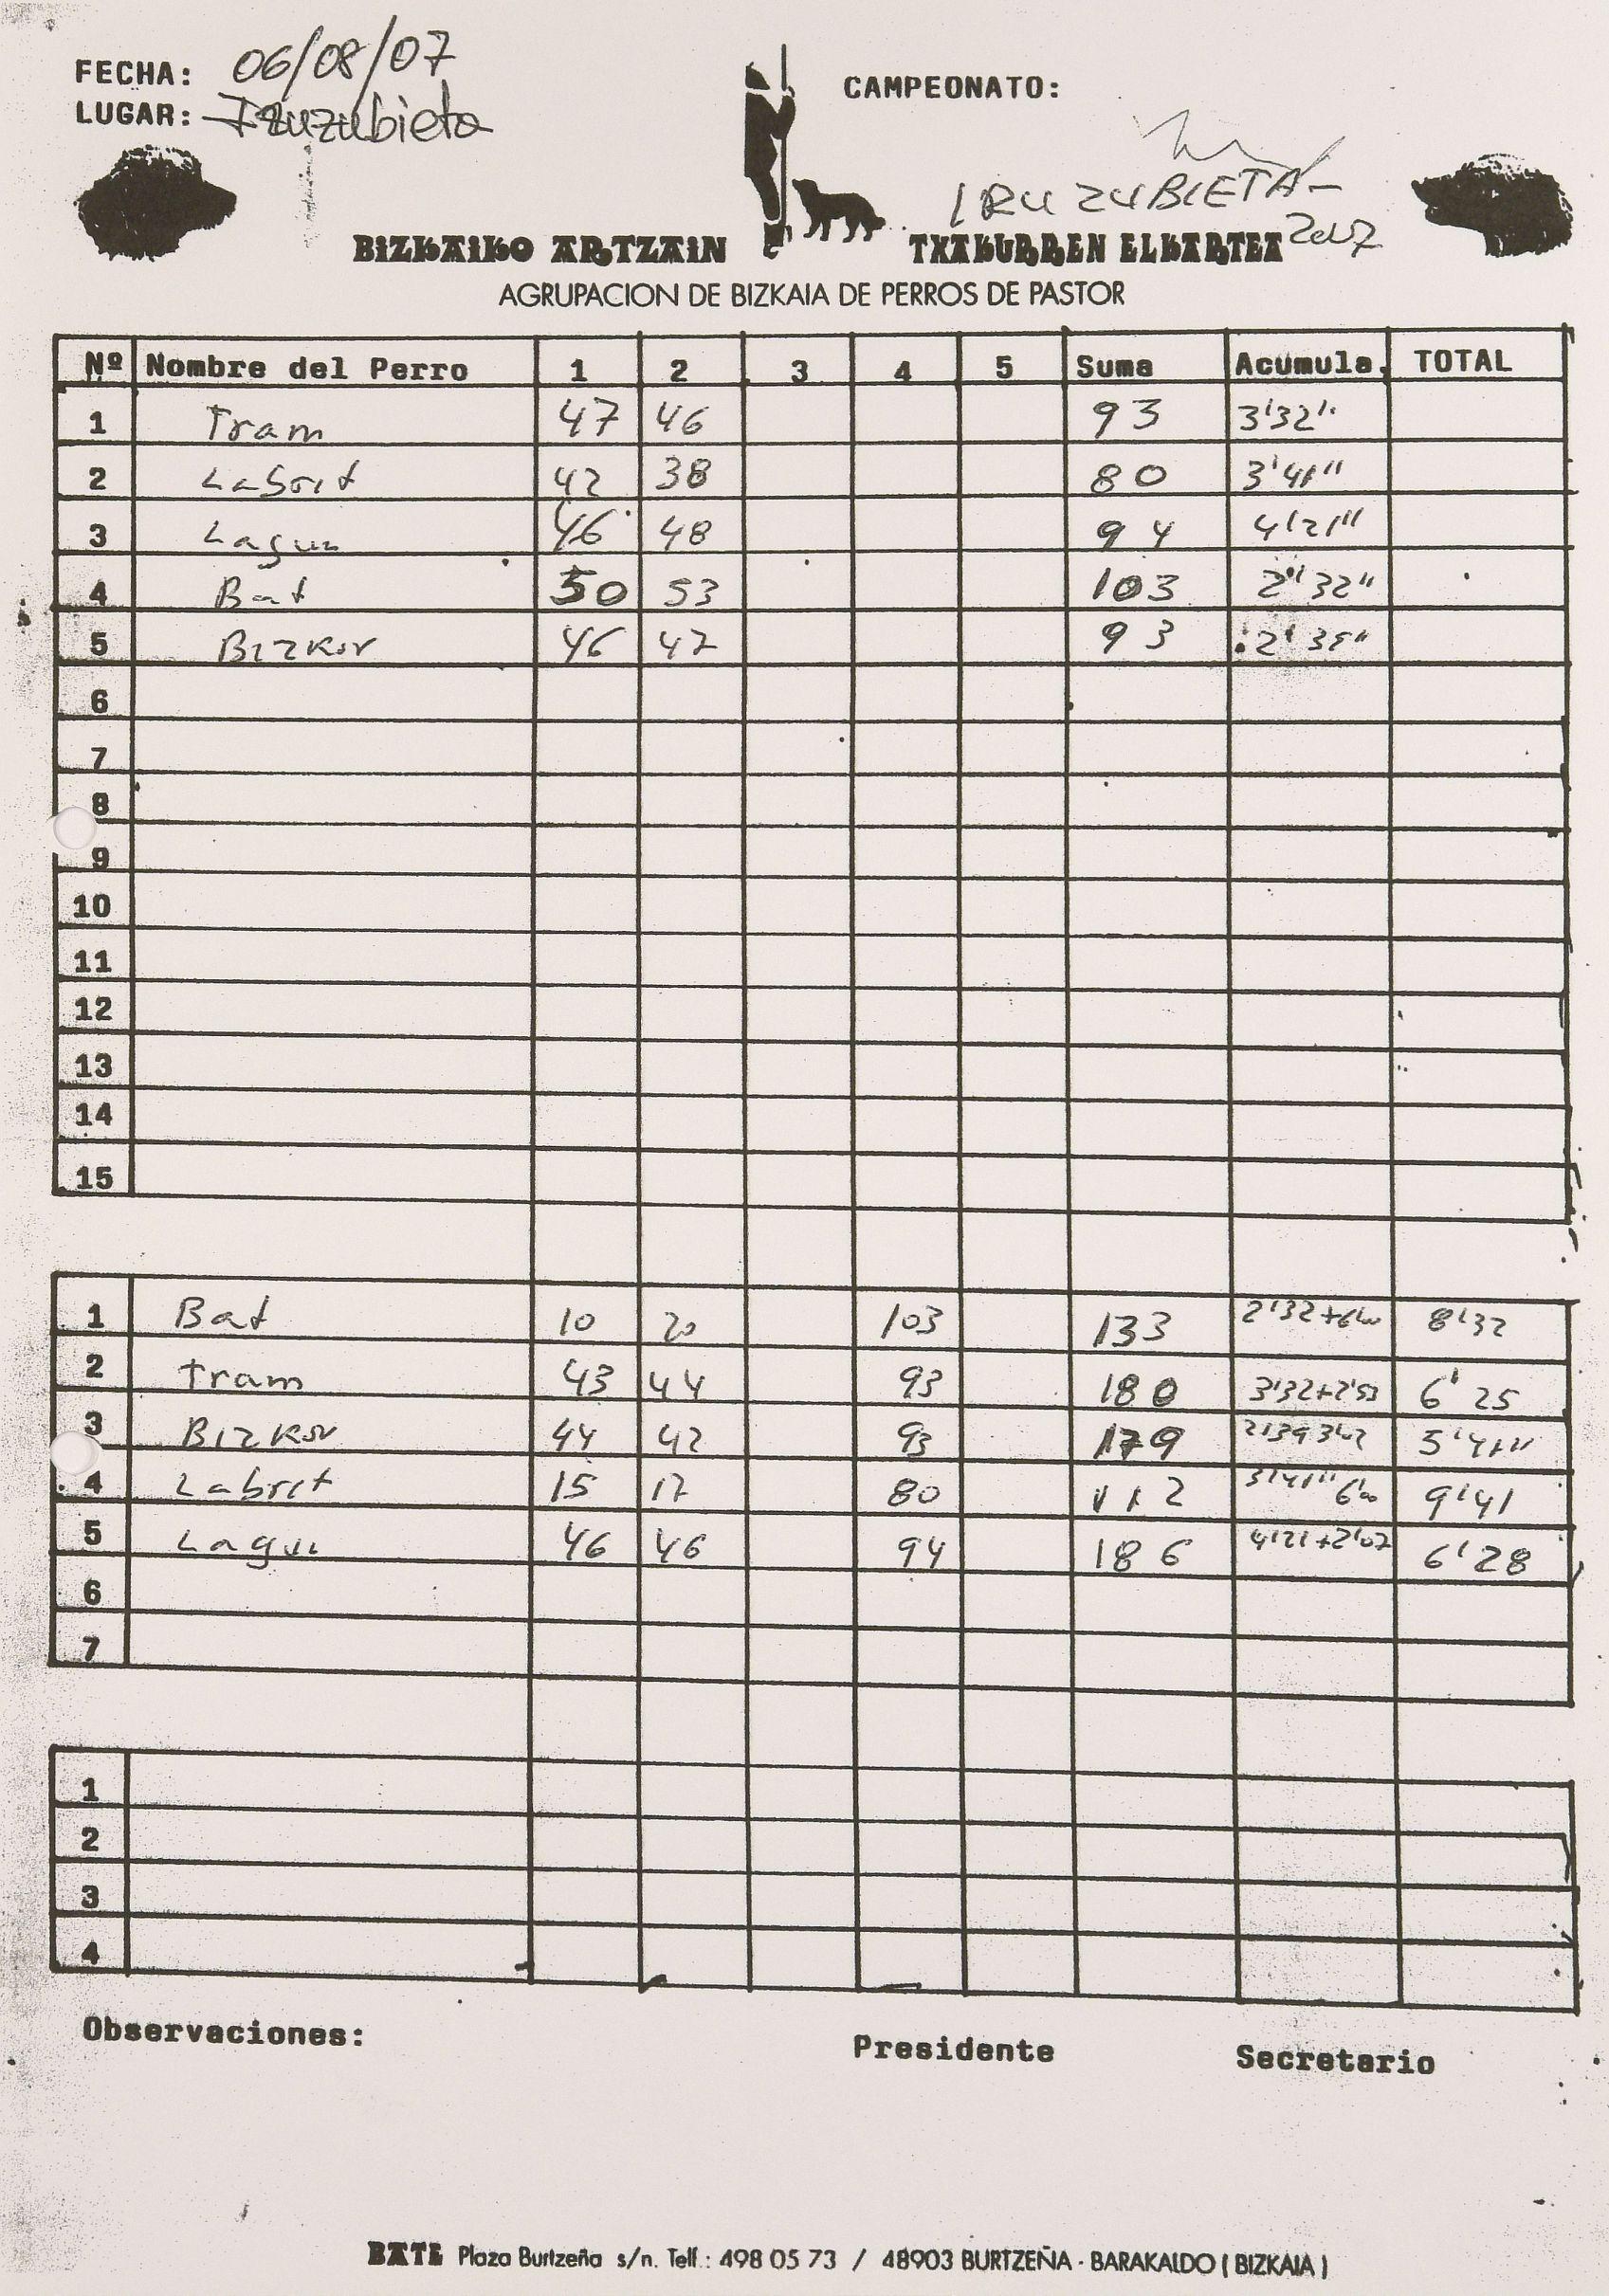 FECHA: 06/08/07
LUGAR: Iruzubieta
CAMPEONATO:
IRUZUBIETA-
2007
BIZKAIKO ARTZAIN TXAKURREN ELKARTEA
AGRUPACION DE BIZKAIA DE PERROS DE PASTOR
Nº Nombre del Perro 1 2 3 4 5 Suma Acumula. TOTAL
1 Tram 47 46 93 3'32"
2 Labrit 42 38 80 3'41"
3 Lagun 46 48 94 4'21"
4 Bat 50 53 103 2'32"
5 Bizkor 46 47 93
6
7
8
9
10
11
12
13
14
15
1 Bat 10 20 103 133 2'32+6'00 8'32
2 Tram 43 44 93 180 3'32+2'53 6'25
3 Bizkor 44 42 93 179 2'39 3'02 5'41"
4 Labrit 15 17 80 112 3'41" 6'00 9'41
5 Lagun 46 46 94 186 4'21+2'07 6'28
6
7
1
2
3
4
Observaciones:
Presidente
Secretario
BATE Plaza Burtzeña s/n. Telf.: 498 05 73 / 48903 BURTZEÑA - BARAKALDO ( BIZKAIA )